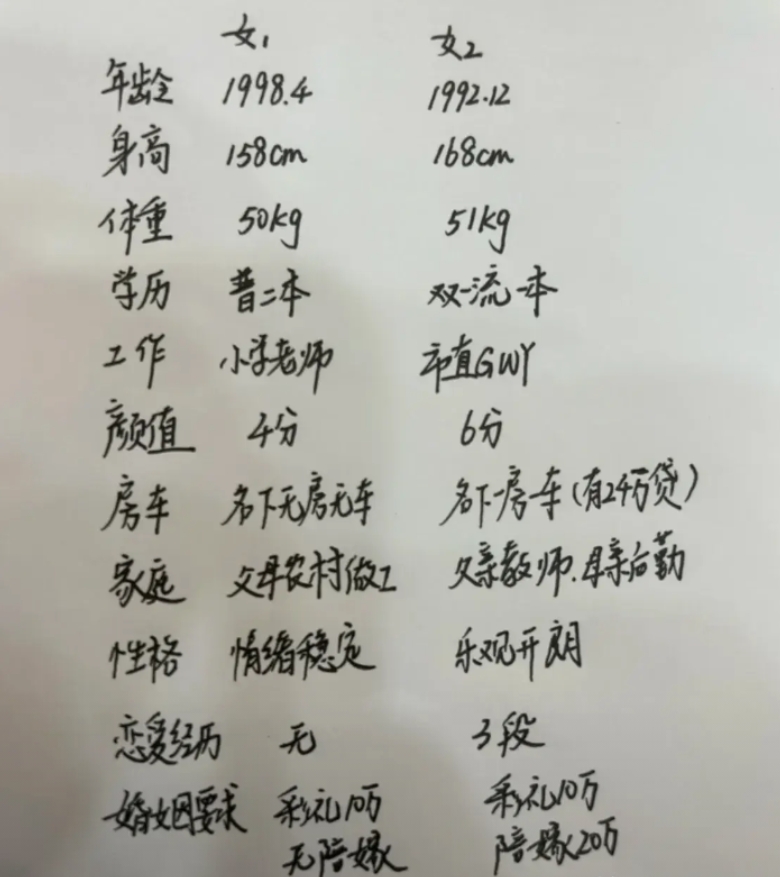 女1 女2
年龄 1998.4 1992.12
身高 158cm 168cm
体重 50kg 51kg
学历 普二本 双一流一本
工作 小学老师 市直GWY
颜值 4分 6分
房车 名下无房无车 名下一房一车(有24万贷)
家庭 父母农村做工 父亲教师.母亲后勤
性格 情绪稳定 乐观开朗
恋爱经历 无 3段
婚姻要求 彩礼10万 彩礼10万
无陪嫁 陪嫁20万